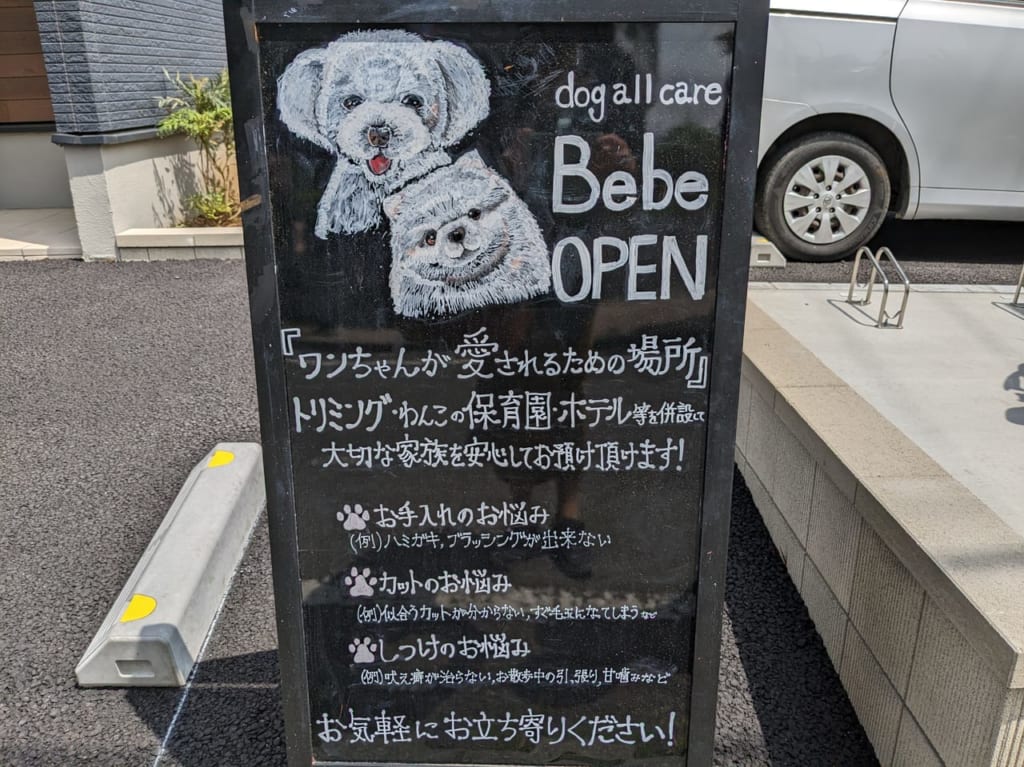 dog all care
Bebe
OPEN
『ワンちゃんが愛されるための場所』
トリミング・わんこの保育園・ホテル等を併設して
大切な家族を安心してお預け頂けます!
お手入れのお悩み
(例)ハミガキ,ブラッシングが出来ない
カットのお悩み
(例)似合うカットが分からない,すぐ毛玉になってしまうなど
しつけのお悩み
(例)吠え癖が治らない,お散歩中の引っ張り,甘噛みなど
お気軽にお立ち寄りください!